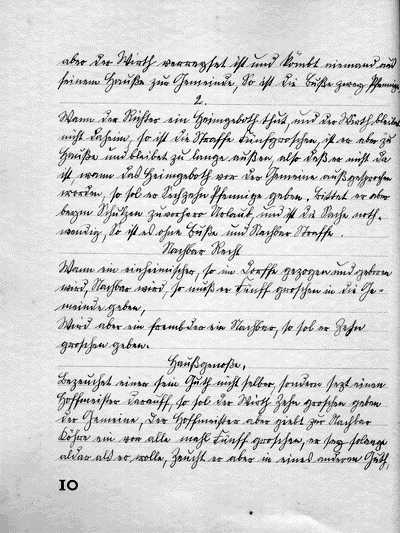 aber der Wirth verreyset ist und kömbt niemand aus
seinem Hauße zur Gemeinde, So ist die Buße zwey Pfennige
2.
Wann der Richter ein Heimgeboth thut, und der Wirth bleibet
nicht daheim, so ist die Straffe Fünfgroschen, ist er aber zu
Hauße und bleibet zu lange außen, also daß er nicht da
ist, wann das Heimgeboth vor der Gemeine außgesprochen
worden, so sol er Sechzehn Pfennige geben. Bittet er aber
beym Schultzen zuvorhero Urlaub, und ist die Sache noth-
wendig, So ist es ohne Buße und Nachbar Straffe.
Nachbar Recht
Wann ein einheimischer, so im Dorffe gezogen und geboren
wird, Nachbar wird, so muß er Fünff groschen in die Ge-
meinde geben,
Wird aber ein frembder ein Nachbar, so sol er Zehn
groschen geben.
Haußgenoße,
Bezeuchet einer sein Guth nicht selber, sondern sezt einen
Hoffmeister darauff, so sol der Wirth Zehn groschen geben
der Gemeine, Der Hoffmeister aber giebt zur Nachbar
ein vor alle mahl Fünff groschen, er sey solange
alda als er wolle, Zeucht er aber in eines anderen Guth,
10